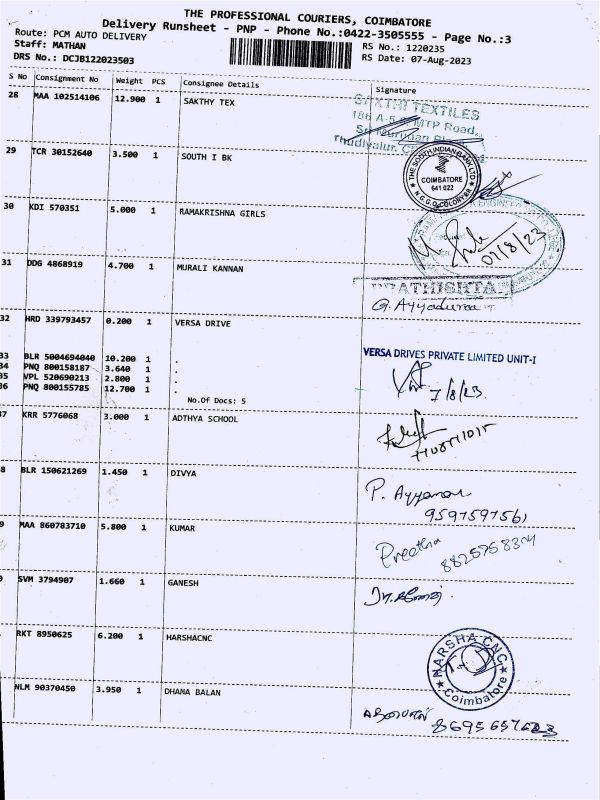 THE PROFESSIONAL COURIERS, COIMBATORE
Delivery Runsheet - PNP - Phone No.:0422-3505555 - Page No.:3
Route: PCM AUTO DELIVERY
Staff: MATHAN RS No.: 1220235
DRS No.: DCJB122023503 RS Date: 07-Aug-2023
S No Consignment No Weight PCS Consignee Details Signature
28 MAA 102514106 12.900 1 SAKTHY TEX
SAKTHI TEXTILES
MTP Road,
Thudiyalur,
29 TCR 30152640 3.500 1 SOUTH I BK
THE SOUTH INDIAN BANK LTD
COIMBATORE
641 022
30 KDI 570351 5.000 1 RAMAKRISHNA GIRLS
07/8/23
31 DDG 4868919 4.700 1 MURALI KANNAN
PRATHISHTA
G. Ayyadurai
32 HRD 339793457 0.200 1 VERSA DRIVE
VERSA DRIVES PRIVATE LIMITED UNIT-I
33 BLR 5004694040 10.200 1 .
34 PNQ 800158187 3.640 1 .
35 VPL 520690213 2.800 1 .
36 PNQ 800155785 12.700 1 .
7/8/23.
No.Of Docs: 5
37 KRR 5776068 3.000 1 ADTHYA SCHOOL
8 BLR 150621269 1.450 1 DIVYA
P. Ayyanar
9597597561
9 MAA 860783710 5.800 1 KUMAR
Preetha
SVM 3794907 1.660 1 GANESH
RKT 8950625 6.200 1 HARSHACNC
HARSHA CNC
Coimbatore
NLM 90370450 3.950 1 DHANA BALAN